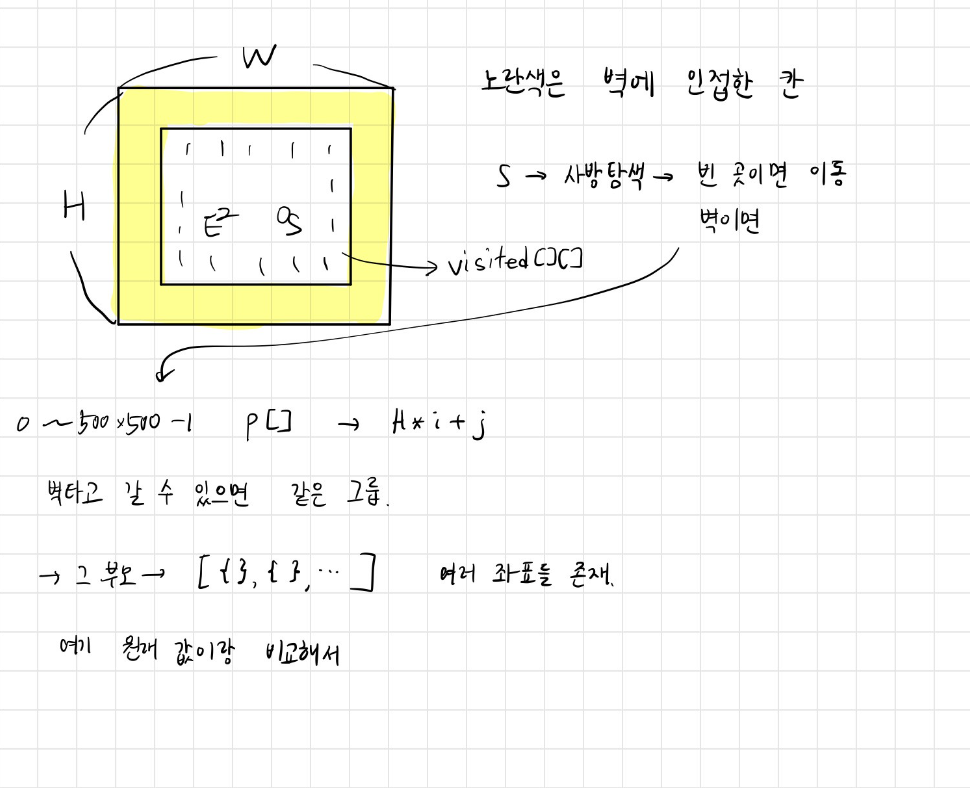 W
노란색은 벽에 인접한 칸
H
S → 사방탐색 → 빈 곳이면 이동
벽이면
E² 0S
visited[][]
0 ~ 500×500 -1 P[] → H*i+j
벽타고 갈 수 있으면 같은 그룹.
→ 그 부모 → [{ }, { }, ... ] 여러 좌표들 존재.
여기 원래 값이랑 비교해서